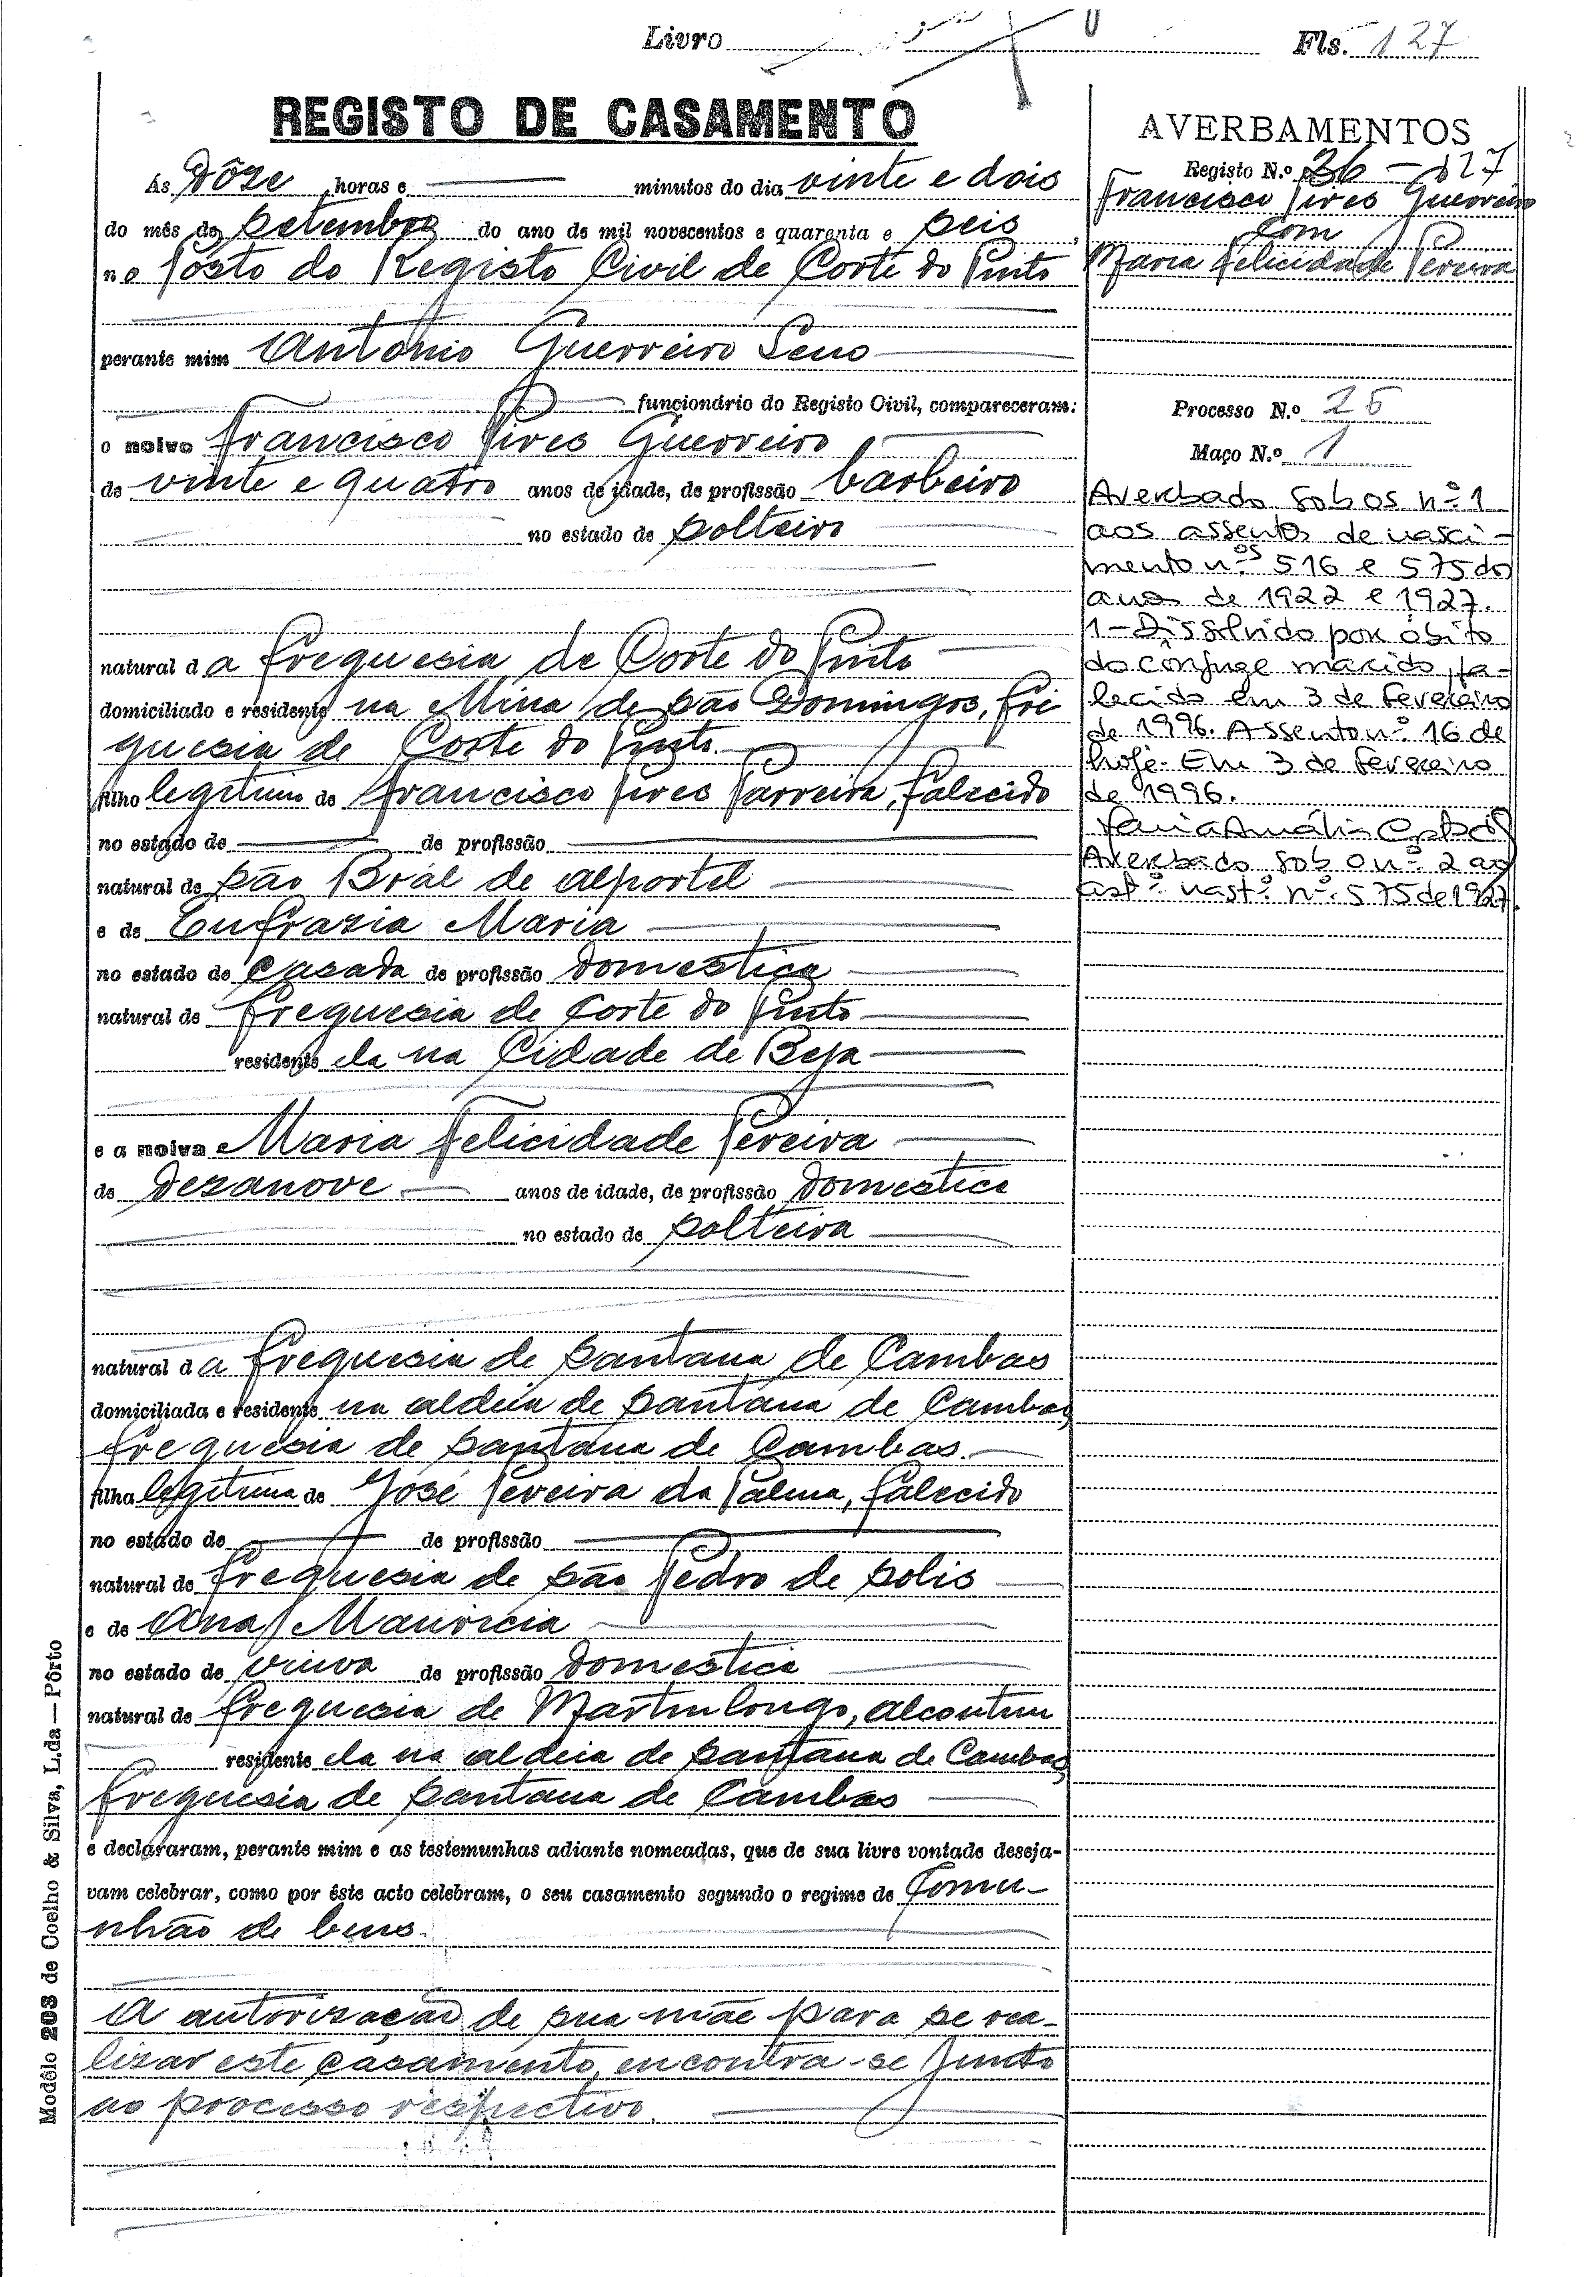 Livro Fls. 127
REGISTO DE CASAMENTO
Às Dôze horas e minutos do dia vinte e dois
do mês de Setembro do ano de mil novecentos e quarenta e seis
no Pôsto do Registo Civil de Corte do Pinto
perante mim António Guerreiro Seno
funcionário do Registo Civil, compareceram:
o noivo Francisco Pires Guerreiro
de vinte e quatro anos de idade, de profissão barbeiro
no estado de solteiro
natural da freguesia de Corte do Pinto
domiciliado e residente na Mina de São Domingos, fre
guesia de Corte do Pinto.
filho legitimo de Francisco Pires Parreira, falecido
no estado de de profissão
natural de São Bráz de Alportel
e de Eufrazia Maria
no estado de casada de profissão domestica
natural de freguesia de Corte do Pinto
residente ela na Cidade de Beja
e a noiva Maria Felicidade Pereira
de Dezanove anos de idade, de profissão domestica
no estado de solteira
natural da freguesia de Santana de Cambas
domiciliada e residente na aldeia de Santana de Cambas,
freguesia de Santana de Cambas.
filha legitima de José Pereira da Palma, falecido
no estado de de profissão
natural de freguesia de São Pedro de Solis
e de Ana Mauricia
no estado de viuva de profissão domestica
natural de freguesia de Martinlongo, Alcoutim
residente ela na aldeia de Santana de Cambas,
freguesia de Santana de Cambas
e declararam, perante mim e as testemunhas adiante nomeadas, que de sua livre vontade deseja-
vam celebrar, como por êste acto celebram, o seu casamento segundo o regime de Comu-
nhão de bens.
A autorização de sua mãe para se rea-
lizar este casamento, encontra-se junto
ao processo respectivo.
Modêlo 203 de Coelho & Silva, L.da—Pôrto
AVERBAMENTOS
Registo N.º 36 - 127
Francisco Pires Guerreiro
com
Maria Felicidade Pereira
Processo N.º 25
Maço N.º 1
Averbado sob os nº 1
aos assentos de nasci-
mento n.ºs 516 e 575 do
anos de 1922 e 1927.
1 - Dissolvido por óbito
do cônjuge marido, fa-
lecido em 3 de Fevereiro
de 1996. Assento nº 16 de
hoje. Em 3 de Fevereiro
de 1996.
Averbado sob o nº 2 ao
asstº. nastº. nº. 575 de 1927.